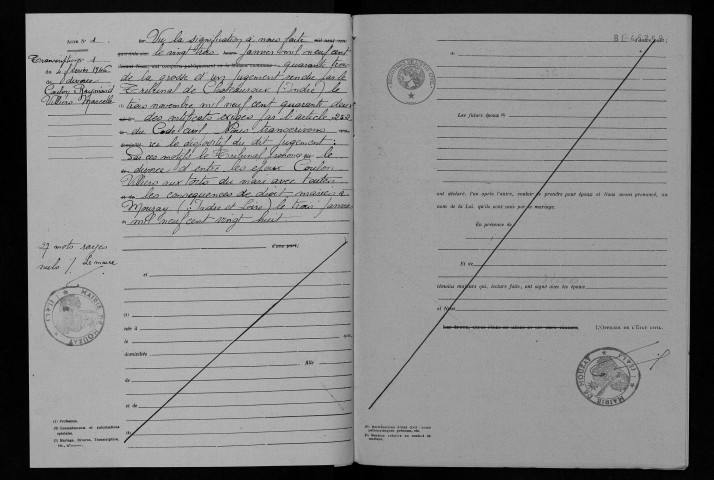 ACTE N° 1
Transcription 1
du 4
divorce
Coulon Raymond
Villiers Marcelle
Vu la signification à nous faite
le vingt trois janvier mil neuf cent
quarante trois
de la grosse d'un jugement rendu par le
Tribunal de Châteauroux (Indre) le
trois novembre mil neuf cent quarante deux
des certificats exigés par l'article 252
du Code Civil Nous transcrivons
ici le dispositif du dit jugement :
Par ces motifs le Tribunal prononce le
divorce d'entre les époux Coulon
Villiers aux torts du mari avec toutes
les conséquences de droit mariés à
Mouzay (Indre et Loire) le trois janvier
mil neuf cent vingt huit
27 mots rayés
nuls / Le maire
d'une part;
et
(1)
née à
le
domiciliée
fille
de
et de
MAIRIE DE MOUZAY
(1) Profession.
(2) Consentements et autorisations
spéciales.
(3) Mariage, Divorce, Transcription,
etc., n°
à
le
Les futurs époux
ont déclaré, l'un après l'autre, vouloir se prendre pour époux et Nous avons prononcé, au
nom de la Loi, qu'ils sont unis par le mariage.
En présence de
Et de
témoins majeurs qui, lecture faite, ont signé avec les époux
et Nous
L'OFFICIER DE L'ÉTAT CIVIL,
MAIRIE DE MOUZAY